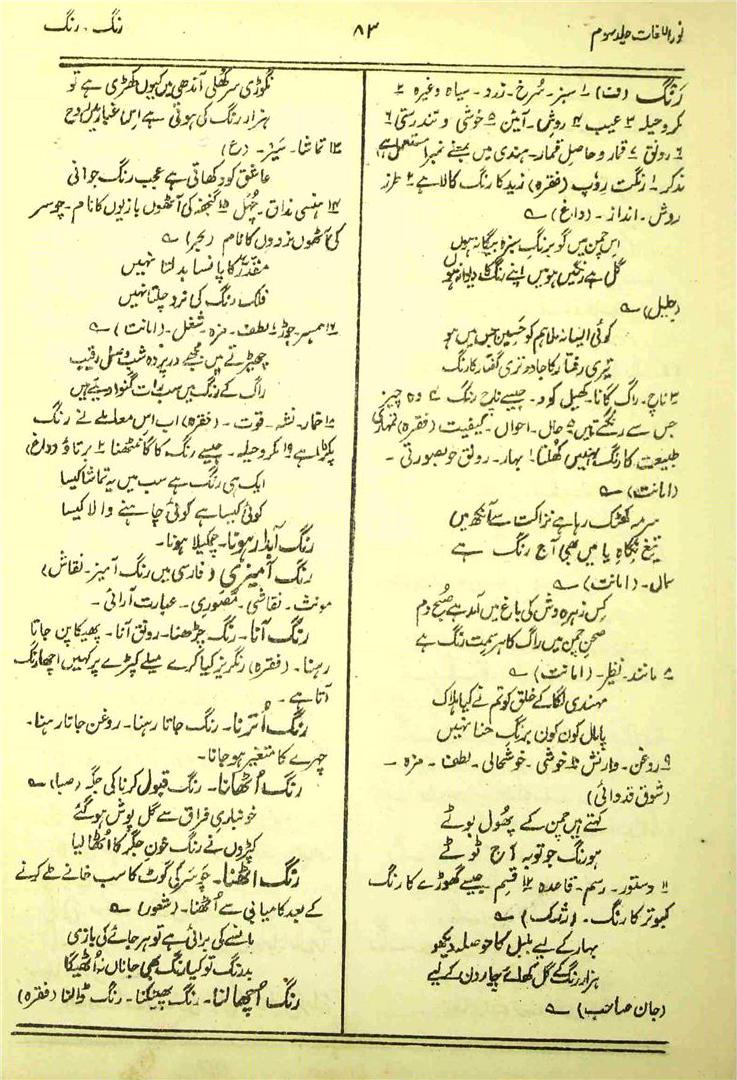 نور اللغات جلد سوم
۸۳
رنگ ۔ رنگ
رَنگ (ف) ۱ سبز ۔ سُرخ ۔ زرد ۔ سیاہ وغیرہ ۲
مکروحیلہ ۳ عیب ۴ روش ۔ آئین ۵ خوشی و تندرستی ۶
۶ رونق ۷ قمار و حاصل قمار ۔ ہندی میں بمعنے نمبر۱ مستعمل ہے
مذکر ۱ رنگت روپ (فقرہ) زید کا رنگ کالا ہے ۲ طرز
روش ۔ انداز ۔ (داغ) ؎
اس چمن میں گو برنگِ سبزہ بیگانہ ہوں
گل ہے رنگیں ہو میں اپنے رنگ کا دیوانہ ہوں
(جلیل) ؎
کوئی ایسا نہ ملا ہم کو حسیں جس میں ہو
تیری رفتار کا جادو تری گفتار کا رنگ
۳ ناچ ۔ راگ گانا ۔ کھیل کود ۔ جیسے ناچ رنگ ۴ وہ چیز
جس سے رنگتے ہیں ۵ حال ۔ احوال ۔ کیفیت (فقرہ) تمہاری
طبیعت کا رنگ نہیں کھُلتا ۶ بہار ۔ رونق خوبصورتی ۔
(امانت) ؎
سرمہ کھٹک رہا ہے نزاکت سے آنکھ میں
تیغِ نگاہِ یا میں بھی آج رنگ ہے
۷ سماں ۔ (امانت) ؎
کِس زہرہ وش کی باغ میں آمد ہے صُبح دم
صحنِ چمن میں راگ کا ہر سمت رنگ ہے
۸ مانند ۔ نظر ۔ (امانت) ؎
مہندی لگا کے خلق کو تم نے کیا ہلاک
پامال کون کون برنگِ حنا نہیں
۹ روغن ۔ وارنش ۱۰ خوشی ۔ خوشحالی ۔ لطف ۔ مزہ ۔
(شوق قدوائی)
کہتے ہیں چمن کے پھُول بوٹے
ہو رنگ جو توبہ آج ٹوٹے
۱۱ دستور ۔ رسم ۔ قاعدہ ۱۲ قسم ۔ جیسے گھوڑے کا رنگ
کبوتر کا رنگ ۔ (رشک) ؎
بہار کے لیے بلبل کا حوصلہ دیکھو
ہزار رنگ کے گل کھلائے چار دن کے لیے
(جان صاحب) ؎
نگوڑی سر کھلی آندھی میں کیوں کھڑی ہے تو
ہزار رنگ کی ہوتی ہے اس غبار میں روح
۱۳ تماشا ۔ سیر ۔ (ع)
عاشق کو دکھاتی ہے عجب رنگ جوانی
۱۴ ہنسی مذاق ۔ چُہل ۱۵ گنجفہ کی آٹھوں بازیوں کا نام ۔ چوسر
کی آٹھوں نردوں کا نام (بحر) ؎
مقدّر کا پانسا بدلتا نہیں
فلک رنگ کی نرد چلتا نہیں
۱۶ ہمسر جوڑ ۱۷ لطف ۔ مزہ ۔ شغل ۔ (امانت) ؎
چھیڑتے ہیں مجھے در پردہ شبِ وصل رقیب
راگ کے رنگ میں سب رات گنوا دیتے ہیں
۱۸ خمار ۔ نشہ ۔ قوت ۔ (فقرہ) اب اس معاملے نے رنگ
پکڑا ہے ۱۹ مکروحیلہ ۔ جیسے رنگ کا گانٹھنا ۲۰ برتاؤ (داغ)
ایک ہی رنگ ہے سب میں یہ تماشا کیسا
کوئی کیسا ہے کوئی چاہنے والا کیسا
رنگ آبدار ہونا ۔ چمکیلا ہونا ۔
رنگ آمیزی (فارسی میں رنگ آمیز ۔ نقاش)
مونث ۔ نقاشی ۔ مصوّری ۔ عبارت آرائی ۔
رنگ آنا ۔ رنگ چڑھنا ۔ رونق آنا ۔ پھیکا پن جاتا
رہنا ۔ (فقرہ) رنگریز کیا کرے میلے کپڑے پر کہیں اچھا رنگ
آتا ہے ۔
رنگ اُترنا ۔ رنگ جاتا رہنا ۔ روغن جاتا رہنا ۔
چہرے کا متغیر ہو جانا ۔
رنگ اُٹھانا ۔ رنگ قبول کرنا کی جگہ (صبا) ؎
خونباریِ فراق سے گل پوش ہو گئے
کپڑوں نے رنگ خونِ جگر کا اُٹھا لیا
رنگ اٹھنا ۔ چوسر کی گوٹ کا سب خانے طے کرنے
کے بعد کامیابی سے اُٹھنا ۔ (شعور) ؎
پانسے کی برائی ہے تو ہر جائے کی بازی
بدرنگ تو کیا رنگ بھی جاناں نہ اُٹھیگا
رنگ اُچھالنا ۔ رنگ پھینکنا ۔ رنگ ڈالنا (فقرہ)